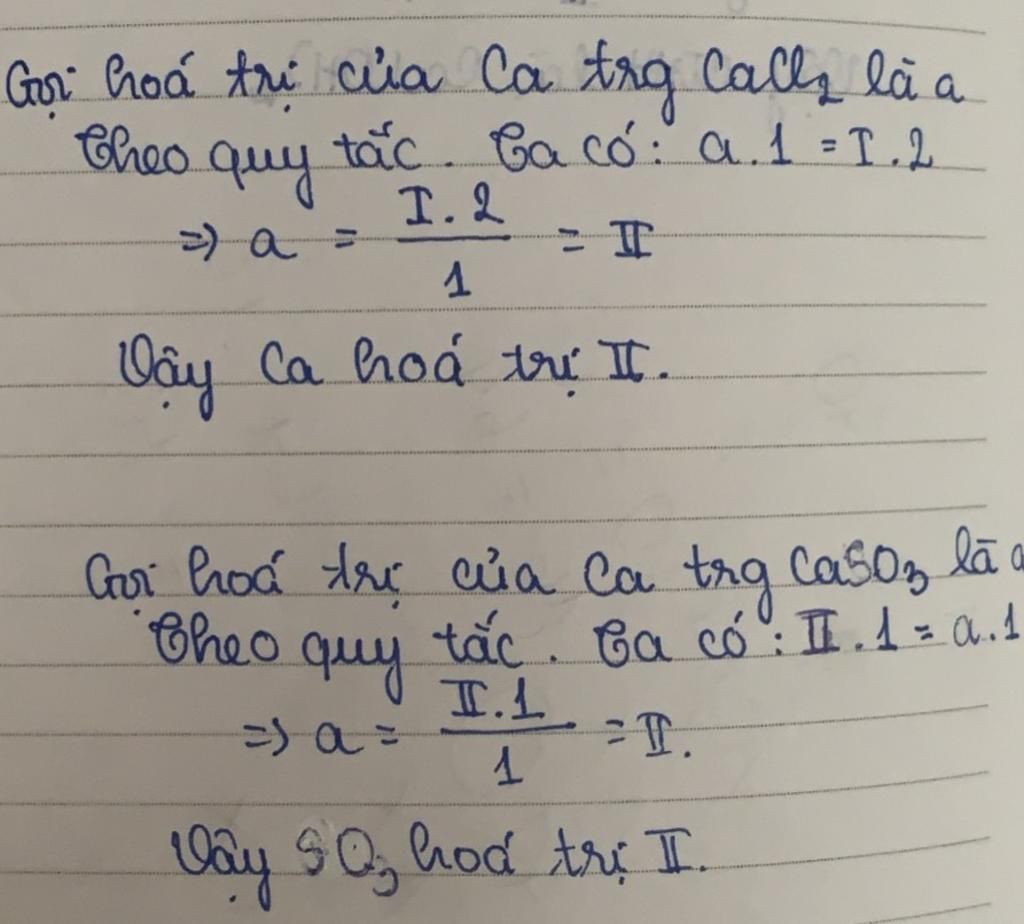 Gọi hoá trị của Ca trg CaCl₂ là a
Theo quy tắc. Ta có: a.1 = I.2
=> a = I.2 / 1 = II
Vậy Ca hoá trị II.
Gọi hoá trị của Ca trg CaSO₃ là a
Theo quy tắc. Ta có: II.1 = a.1
=> a = II.1 / 1 = II.
Vậy SO₃ hoá trị II.